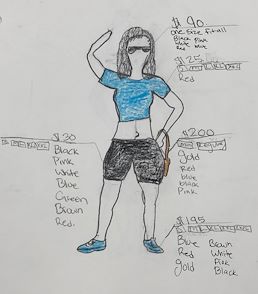 $ 90
one size fit all
Black Pink
white
Red blue
$ 25
Red
$ 30
Black
Pink
White
Blue
Green
Brown
Red.
$ 200
Regular
gold
Red
blue
black
Pink
$ 195
Blue Brown
Red White
gold Pink
Black